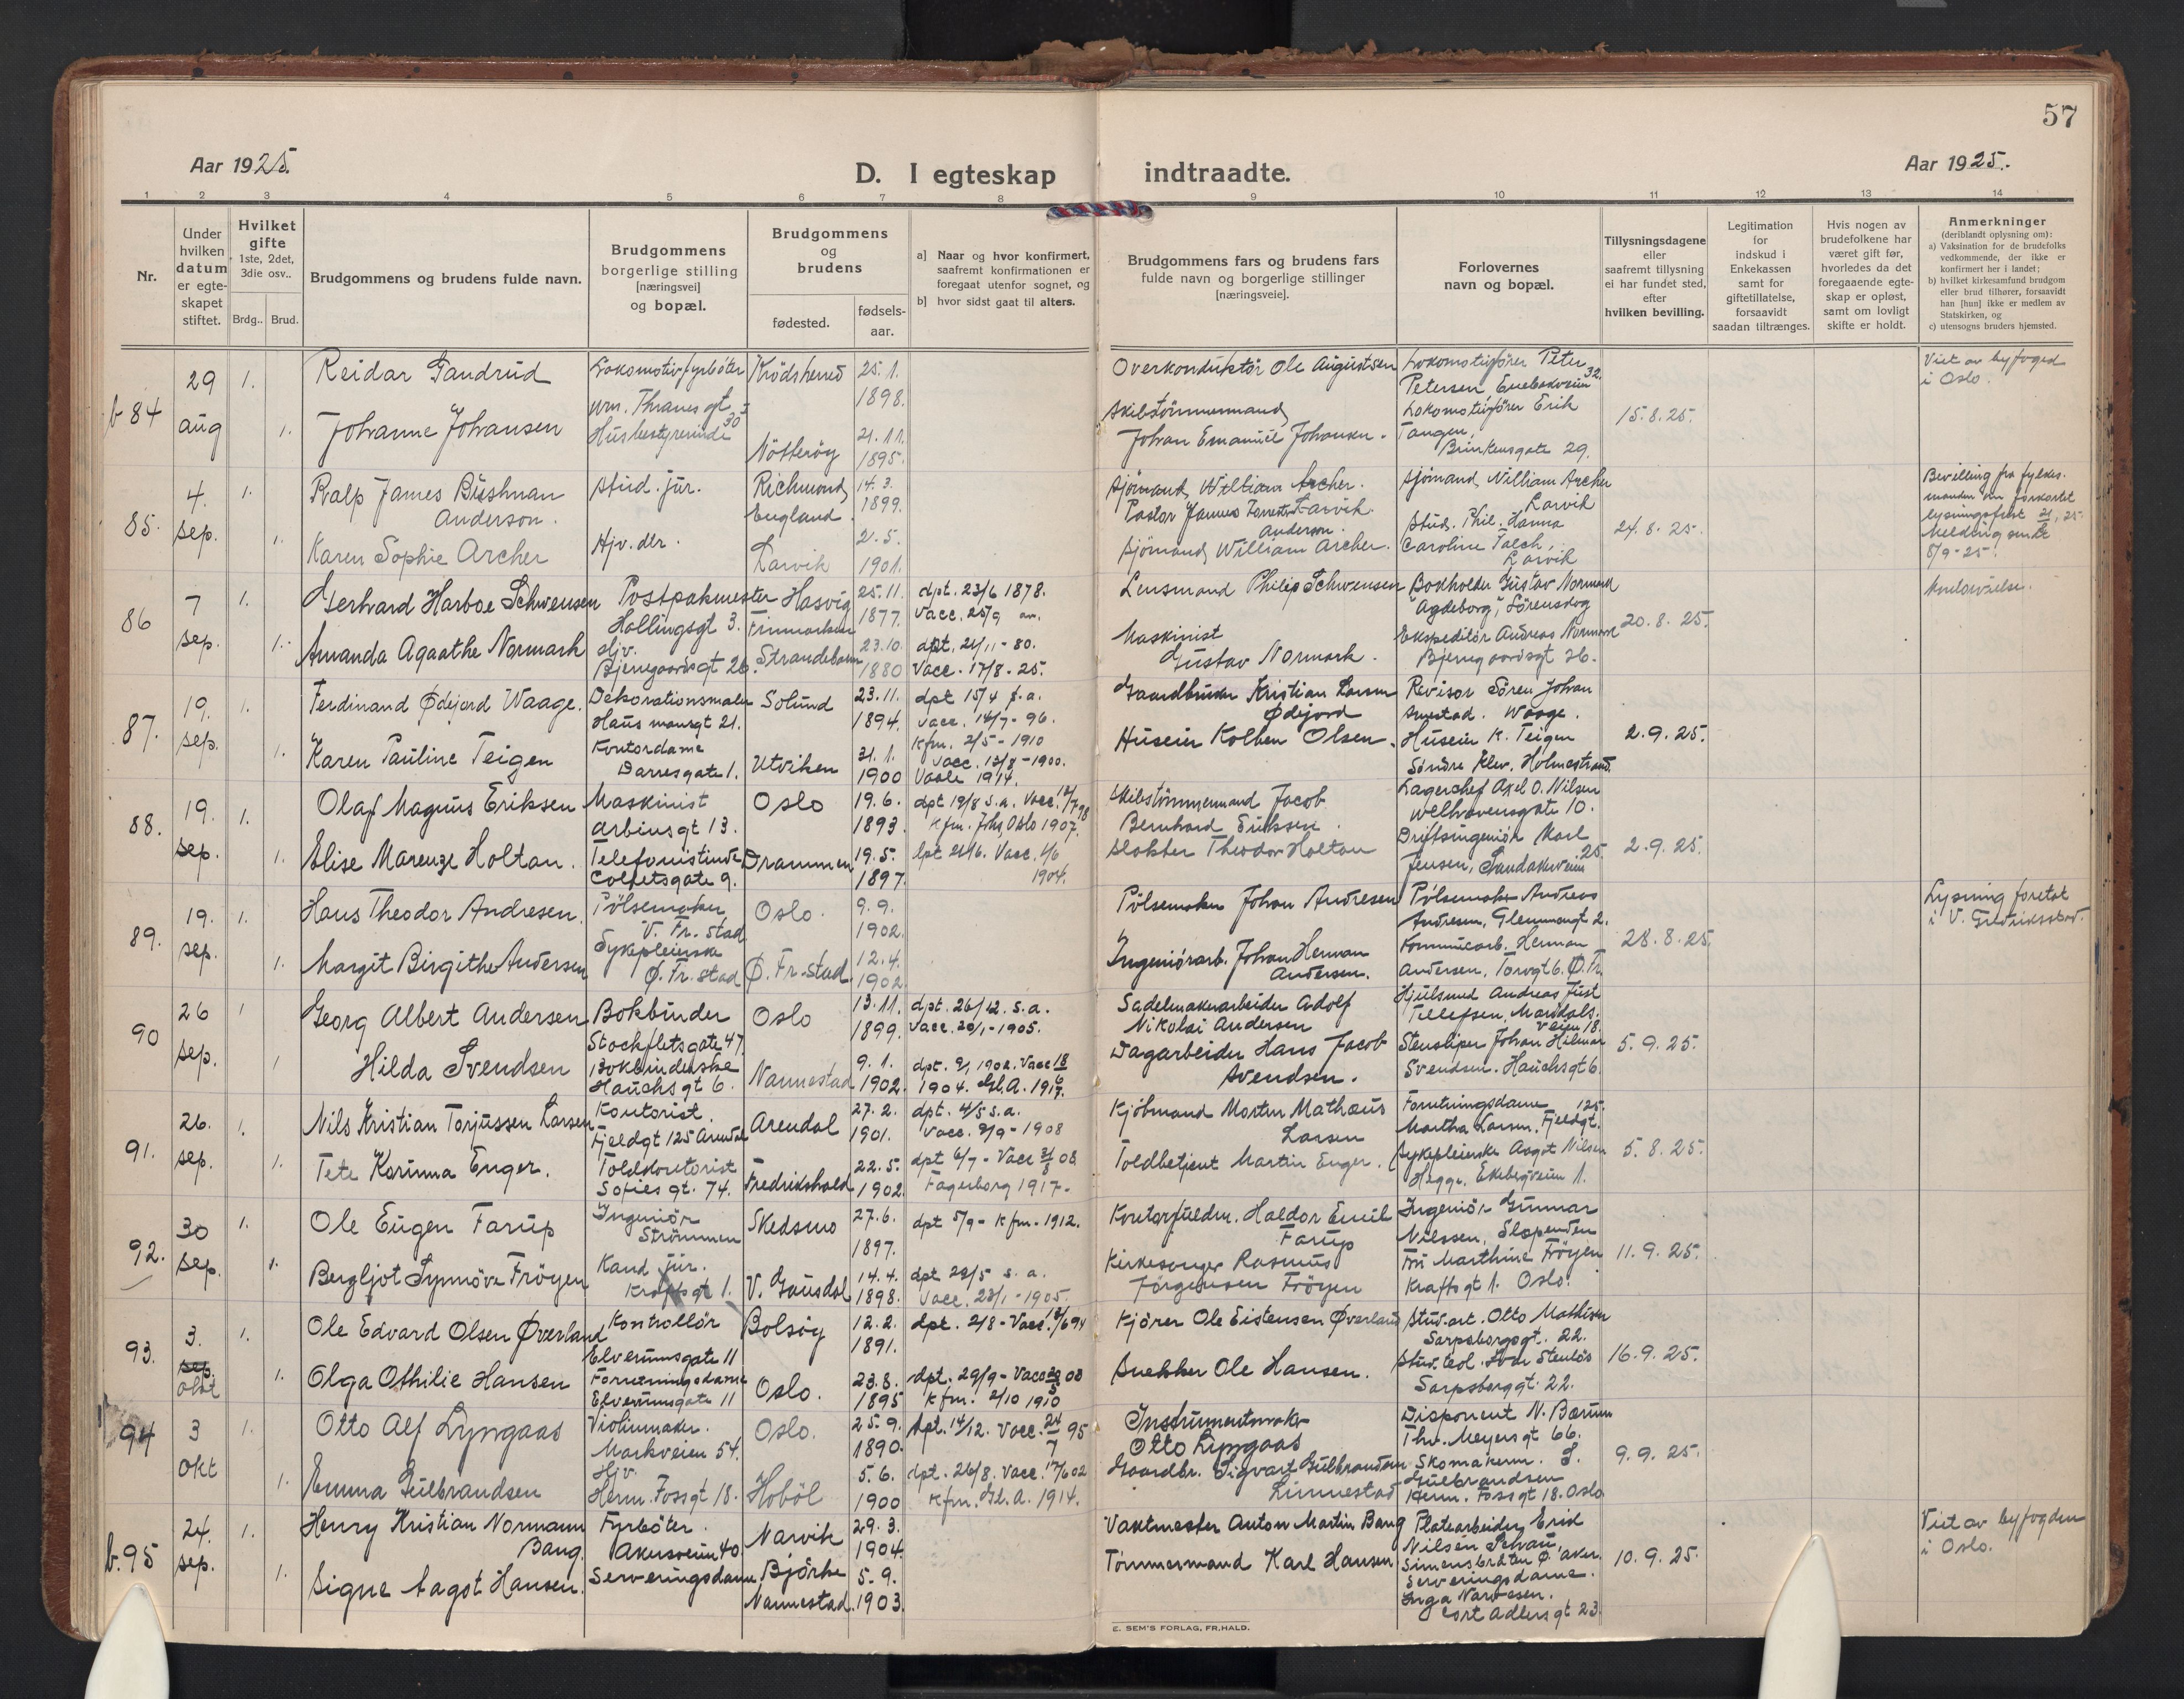 57
Aar 1925.
D. I egteskap indtraadte.
Aar 1925.
1 2 3 4 5 6 7 8 9 10 11 12 13 14
Nr.
Under hvilken datum er egte- skapet stiftet.
Hvilket gifte 1ste, 2det, 3die osv..
Brdg.. Brud.
Brudgommens og brudens fulde navn.
Brudgommens borgerlige stilling [næringsvei] og bopæl.
Brudgommens og brudens
fødested.
fødsels- aar.
a] Naar og hvor konfirmert, saafremt konfirmationen er foregaat utenfor sognet, og
b] hvor sidst gaat til alters.
Brudgommens fars og brudens fars fulde navn og borgerlige stillinger [næringsveie].
Forlovernes navn og bopæl.
Tillysningsdagene eller saafremt tillysning ei har fundet sted, efter hvilken bevilling.
Legitimation for indskud i Enkekassen samt for giftetillatelse, forsaavidt saadan tiltrænges.
Hvis nogen av brudefolkene har været gift før, hvorledes da det foregaaende egte- skap er opløst, samt om lovligt skifte er holdt.
Anmerkninger (deriblandt oplysning om):
a) Vaksination for de brudefolks vedkommende, der ikke er konfirmert her i landet;
b) hvilket kirkesamfund brudgom eller brud tilhører, forsaavidt han [hun] ikke er medlem av Statskirken, og
c) utensogns bruders hjemsted.
b 84
29 aug
1.
Reidar Gandrud
Lokomotivfyrbøter
Wm. Thranes gt. 30
Krødsherred
25.1. 1898.
Overkonduktør Ole Augustsen
Lokomotivfører Peter Petersen, Enebakveien 32.
15.8.25.
Viet av byfoged i Oslo.
1.
Johanne Johansen
Husbestyrerinde
Nøtterøy
21.11. 1895.
Skibstømmermand
Johan Emanuel Johansen.
Lokomotivfører Erik Tangen, Brinkensgate 29.
85.
4. sep.
1.
Ralp James Bushnan Anderson.
stud. jur.
Richmond, England.
14.3. 1899.
Sjömand William Archer. Larvik
Pastor James Forrester Anderson.
Sjömand, William Archer Larvik
24.8.25.
Bevilling fra fylkesmanden om forkortet lysningsfrist
Melding sendt 8/9-25
1.
Karen Sophie Archer
Hjv. dtr.
Larvik
2.5. 1901.
Sjömand William Archer.
Stud. Phil. Hanna Caroline Falch, Larvik
86
7 sep.
1.
Gerhard Harboe Schwensen
Postpakmester
Hallingsgt 3.
Hasvig Finmarken
25.11. 1877.
dpt. 23/6 1878.
Vacc. 25/9
Lensmand Philip Schwensen
Bokholder Gustav Normark "Agdeborg", Sørenskog
20.8.25.
1.
Amanda Agaathe Normark
Hjv.
Bjerregaardsgt 26.
Strandebarm
23.10. 1880
dpt. 21/11-80.
Vacc. 17/8-25.
Maskinist
Gustav Normark.
Ekspeditør Andreas Normark
Bjerregaardsgt 26.
87.
19. sep.
1.
Ferdinand Ødejord Waage.
Dekorationsmaler
Hausmansgt 21.
Solund
23.11. 1894.
dpt 15/4 f.a.
vacc. 14/7-96.
Gaardbruker Kristian Larsen Ødejord
Revisor Sören Johan Waage.
2.9.25.
1.
Karen Pauline Teigen
Kontordame
Darresgate 1.
Utviken
31.1. 1900
Kfm. 2/5-1910
vacc. 13/8-1900.
Vaale 1914.
Huseier Kolben Olsen.
Huseier K. Teigen
Søndre Klev. Holmestrand.
88.
19. sep.
1.
Olaf Magnus Eriksen
Maskinist
Arbiusgt 13.
Oslo
19.6. 1893.
dpt 19/8 s.a. Vacc. 12/7 98
Kfm. Johs, Oslo 1907.
Skibstømmermand Jacob Bernhard Eriksen.
Lagerchef Axel O. Nilsen
Welhavensgate 10.
2.9.25.
1.
Elise Marenze Holtan.
Telefonistinde
Colletsgate 9.
Drammen
19.5. 1897.
dpt 21/6. Vacc. 1/6 1904.
Slakter Theodor Holtan
Driftsingeniør Karl Jensen, Sandakerveien 25
89.
19. sep.
1.
Hans Theodor Andresen.
Pølsemaker
V. Fr. stad
Oslo.
9.9. 1902.
Pølsemaker Johan Andresen
Pølsemaker Andreas Andresen, Glemmengt 2.
28.8.25.
Lysning foretat i V. Fredriksstad.
1.
Margit Birgithe Andersen
Sykepleierske
Ø. Fr. stad
Ø. Fr. stad
12.4. 1902
Ingeniørarb. Johan Herman Andersen.
Kommunearb. Herman Andersen. Torvgt 6. Ø. Fr.
90
26 sep.
1
Georg Albert Andersen
Bokbinder
Stockfletsgate 47
Oslo
13.11. 1899.
dpt. 26/12. s.a.
Vacc. 20/1-1905.
Sadelmakerarbeider Adolf Nikolai Andersen
Hjulsmed Andreas Just Tellefsen, Maridalsveien 18.
5.9.25.
1
Hilda Svendsen
Bokbinderske
Hauchsgt 6.
Nannestad
9.1. 1902.
dpt. 9/1 1902. Vacc 18/6 1904. Gl. A. 1917.
Dagarbeider Hans Jacob Svendsen.
Stensliper Johan Hilmar Svendsen. Hauchsgt 6.
91.
26. sep.
1.
Nils Kristian Torjussen Larsen
Kontorist.
Fjeldgt 125 Arendal
Arendal
27.2. 1901.
dpt. 4/5 s.a.
Vacc. 9/9-1908
Kjøbmand Morten Mathæus Larsen
Forretningsdame
Martha Larsen. Fjeldgt. 125.
5.8.25.
1.
Tete Korinna Enger.
Toldkontorist
Sofies gt. 74.
Fredrikshald
22.5. 1902
dpt 6/7 - Vacc 31/8 08.
Fagerborg 1917-
Toldbetjent Martin Enger.
Sykepleierske Aagot Nilsen Hegge. Ekebergveien 1.
92.
30 sep.
1.
Ole Eugen Farup
Ingeniør
Strømmen
Skedsmo
27.6. 1897.
dpt 5/9 - Kfm. 1912.
Kontorfuldm. Haldor Emil Farup
Ingeniør Gunnar Nielsen. Slependen
11.9.25.
1.
Bergljot Synnöve Fröyen
Kand jur.
Kraftsgt 1.
V. Gausdal
14.4. 1898.
dpt 29/5 s.a.
Vacc. 23/1-1905.
Kirkesanger Rasmus Jørgensen Fröyen
Frk Marthine Fröyen
Kraftsgt 1. Oslo.
93.
3. sep. okt
1.
Ole Edvard Olsen Øverland
Kontrollør
Elverumsgate 11
Bolsöy
12.2. 1891.
dpt. 2/8 - Vacc. 12/6 94
Kjører Ole Eistensen Øverland
Stud. art. Otto Mathisen
Sarpsborggt. 22.
16.9.25.
1.
Olga Othilie Hansen
Forretningsdame
Elverumsgate 11
Oslo.
23.8. 1895
dpt. 29/9 - Vacc
kfm. 2/10 1910
Snekker Ole Hansen.
Stud. teol. Ivar Stenløs
Sarpsborggt. 22.
94
3 okt
1.
Otto Alf Lyngaas
Violinmaker.
Markveien 54.
Oslo.
25.9. 1890.
dpt. 14/12. Vacc. 24/7 95
Instrumentmaker
Otto Lyngaas
Disponent N. Bærum
Thv. Meyersgt 66.
9.9.25.
1.
Emma Gulbrandsen
Hjv.
Herm. Fossgt 18.
Hobøl
5.6. 1900
dpt. 26/8. Vacc. 17/6 02
Kfm. Gl. A. 1914.
Gaardbr. Sigvart Gulbrandsen Linnestad
Skomakerm. S. Gulbrandsen
Herm. Fossgt 18. Oslo
b. 95
24. sep.
1.
Henry Kristian Normann Bang.
Fyrbøter.
Akersveien 40
Narvik
29.3. 1904.
Vaktmester Anton Martin Bang
Platearbeider Erik Nilsen
10.9.25.
Viet av byfogden i Oslo.
1.
Signe Aagot Hansen.
Serveringsdame
Bjørke Nannestad.
5.9. 1903.
Tömmermand Karl Hansen
Serveringsdame.
Inga Narvesen.
Cort Adlersgt 23.
E. SEM'S FORLAG, FR.HALD.